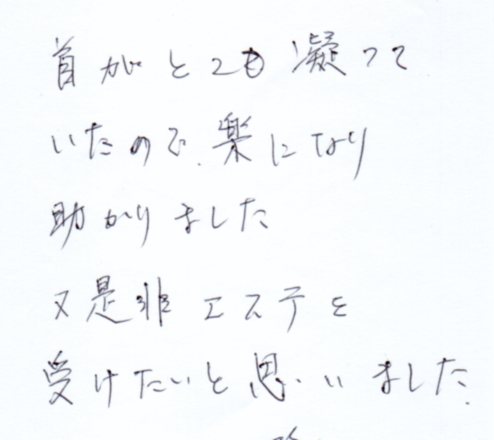 首がとても凝って
いたので、楽になり
助かりました
又是非エステを
受けたいと思いました。